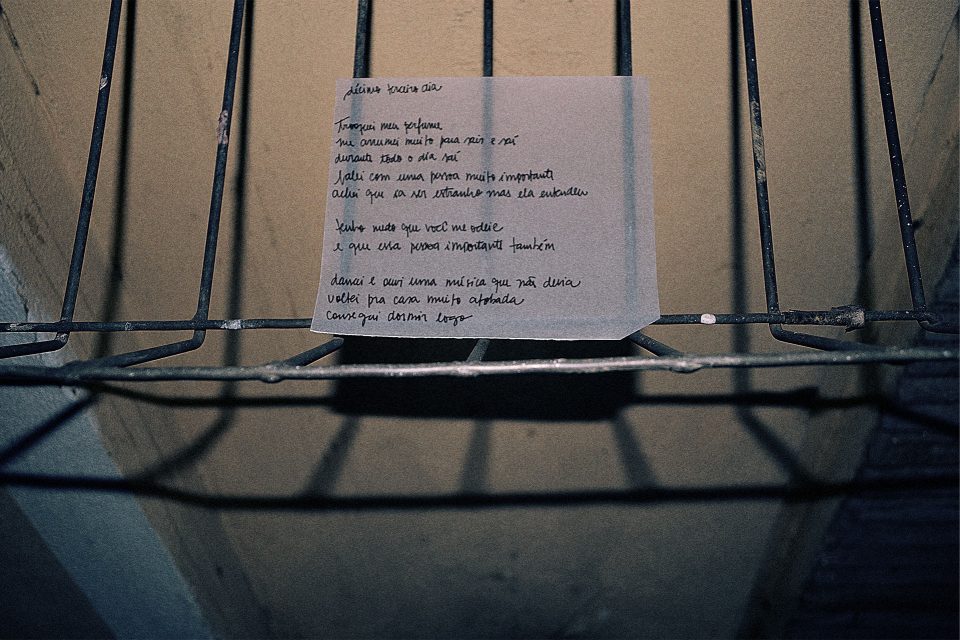 décimo terceiro dia
Troquei meu perfume
me arrumei muito para sair e saí
durante todo o dia saí
falei com uma pessoa muito importante
achei que ia ser estranho mas ela entendeu
tenho medo que você me odeie
e que essa pessoa importante também
dancei e ouvi uma música que não devia
voltei pra casa muito afobada
consegui dormir logo